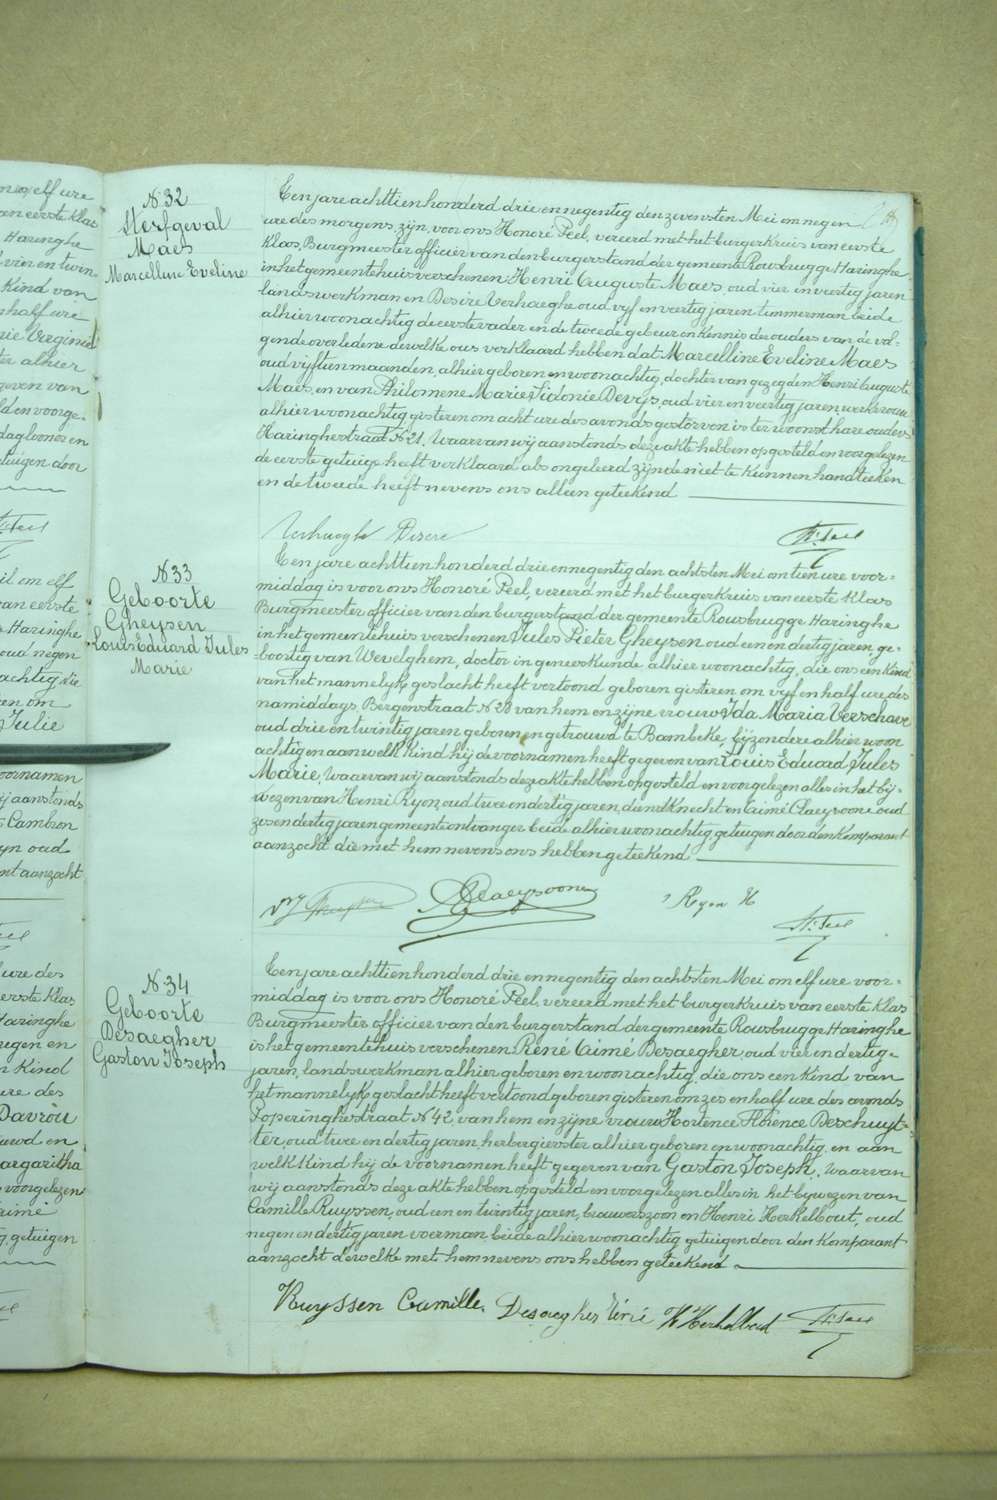 N. 32
Sterfgeval
Maes
Marcelline Eveline
Een jare achttien honderd drie en negentig den zevensten Mei om negen
ure des morgens, zyn, voor ons Honoré Peel, vereerd met het burgerkruis van eerste
Klas, Burgmeester officier van den burgerstand der gemeente Rousbrugge Haringhe
in het gemeentehuis verschenen Henri Auguste Maes, oud vier en veertig jaren
landswerkman en Desiré Verhaeghe oud vyf en veertig jaren timmerman beide
alhier woonachtig de eerste vader en de tweede gebeur en kennis de ouders van de vol=
gende overledene dewelke ons verklaard hebben dat Marcelline Eveline Maes
oud vyftien maanden, alhier geboren en woonachtig, dochter van gezegden Henri Auguste
Maes, en van Philomene Marie Sidonie Devys, oud vier en veertig jaren, werkvrouw
alhier woonachtig gisteren om acht ure des avonds gestorven is ter woonst hare ouders
Haringhestraat N. 21. Waarvan wij aanstonds deze akte hebben opgesteld en voorgelezen
de eerste getuige heeft verklaard als ongeleerd zijnde niet te kunnen handteeken
en de tweede heeft nevens ons alleen geteekend
Verhaeghe Desire
H. Peel
N. 33
Geboorte
Gheysen
Louis Eduard Jules
Marie
Een jare achttien honderd drie en negentig den achtsten Mei om tien ure voor=
middag is voor ons Honoré Peel, vereerd met het burgerkruis van eerste Klas
Burgmeester officier van den burgerstand der gemeente Rousbrugge Haringhe
in het gemeentehuis verschenen Jules Pieter Gheysen oud een en dertig jaren ge=
boortig van Wevelghem, doctor in geneeskunde alhier woonachtig, die ons een Kind
van het mannelyk geslacht heeft vertoond geboren gisteren om vyf en half ure des
namiddags, Bergenstraat N. 28 van hem en zijne vrouw Ida Maria Verschave
oud drie en twintig jaren geboren en getrouwd te Bambeke, byzondere alhier woon
achtig en aan welk Kind hij de voornamen heeft gegeven van Louis Eduard Jules
Marie, Waarvan wij aanstonds deze akte hebben opgesteld en voorgelezen alles in het bij=
wezen van Henri Ryon oud twee en dertig jaren, dienstKnecht en Aimé Claeysoone oud
zes en dertig jaren gemeente ontvanger beide alhier woonachtig getuigen door den Komparant
aanzocht die met hem nevens ons hebben geteekend
Claeysoone
Ryon H
H. Peel
N. 34
Geboorte
Desaegher
Gaston Joseph
Een jare achttien honderd drie en negentig den achtsten Mei om elf ure voor=
middag is voor ons Honoré Peel, vereerd met het burgerkruis van eerste Klas
Burgmeester officier van den burgerstand der gemeente Rousbrugge Haringhe
is het gemeentehuis verschenen René Aimé Desaegher, oud vier en dertig=
jaren, landswerkman alhier geboren en woonachtig, die ons een Kind van
het mannelyk geslacht heeft vertoond geboren gisteren om zes en half ure des avonds
Poperinghestraat N. 42, van hem en zijne vrouw Hortence Florence Deschuyt=
ter, oud twee en dertig jaren, herbergierster alhier geboren en woonachtig, en aan
welk Kind hij de voornamen heeft gegeven van Gaston Joseph. Waarvan
wij aanstonds deze akte hebben opgesteld en voorgelezen alles in het bywezen van
Camille Ruyssen, oud een en twintig jaren, brouwerszoon en Henri Herkelbout, oud
negen en dertig jaren voerman, beide alhier woonachtig getuigen door den Komparant
aanzocht dewelke met hem nevens ons hebben geteekend
Ruyssen Camille. Desaegher René H Herkelbout H. Peel